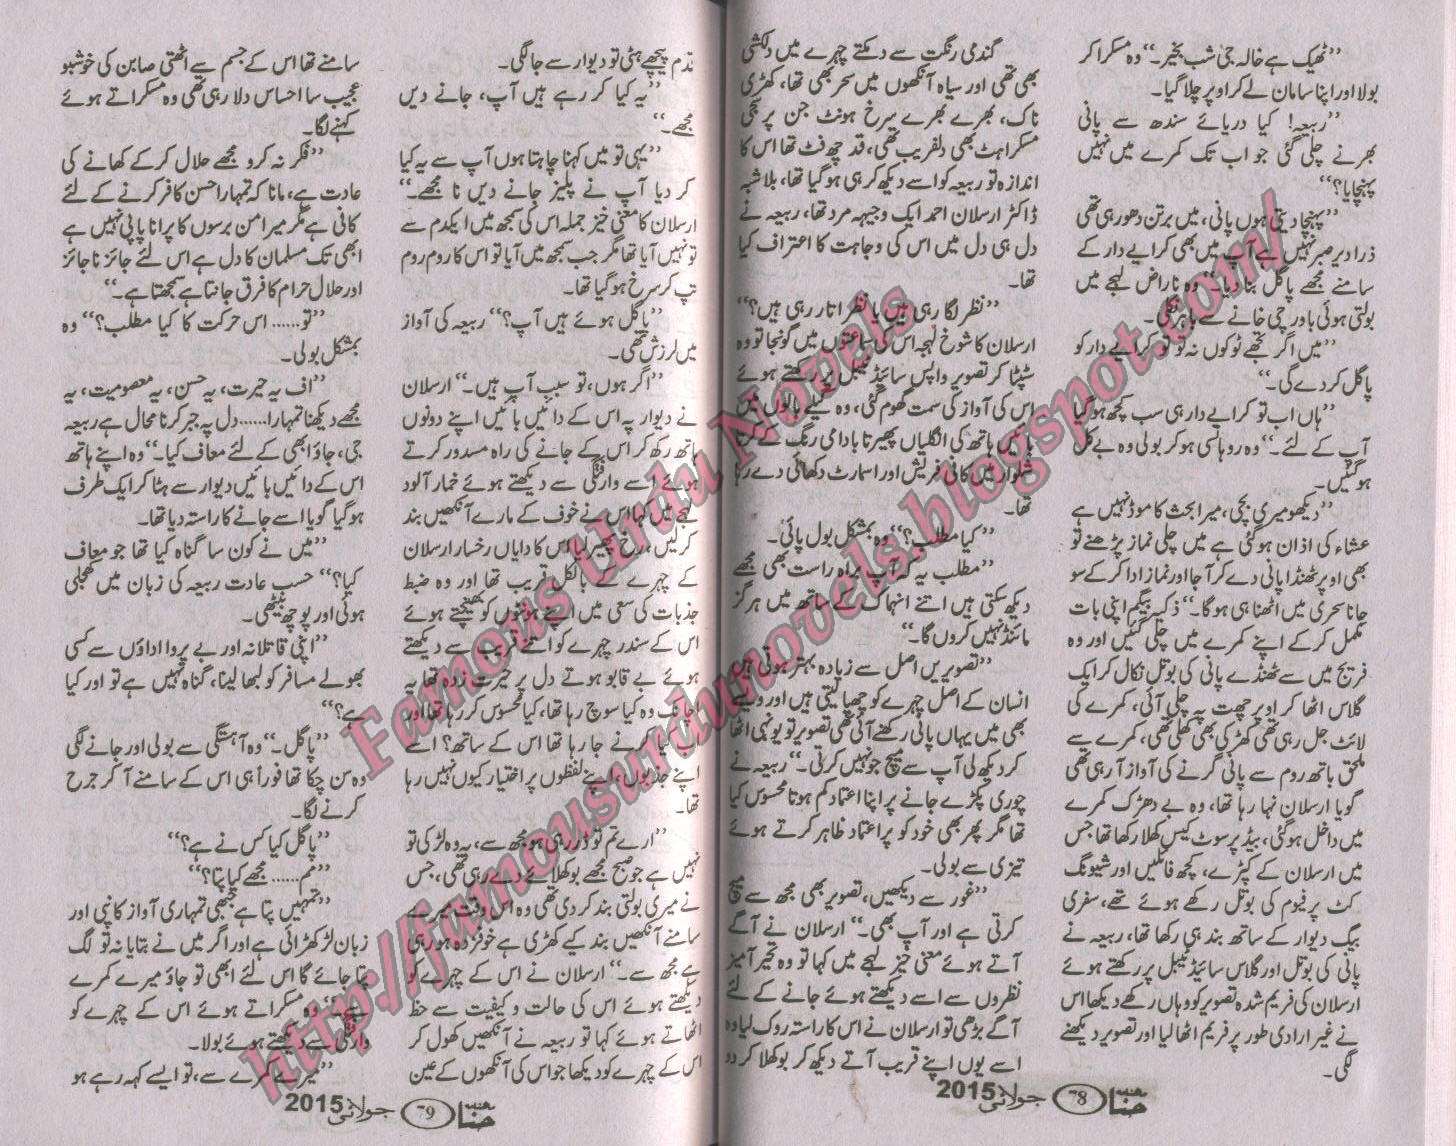 ’’ٹھیک ہے خالہ جی شب بخیر۔‘‘ وہ مسکرا کر
بولا اور اپنا سامان لے کر اوپر چلا گیا۔
’’ربیعہ! کیا دریائے سندھ سے پانی
بھرنے چلی گئی جو اب تک کمرے میں نہیں
پہنچایا؟‘‘
’’پہنچا دیتی ہوں پانی، میں برتن دھو رہی تھی
ذرا دیر صبر نہیں ہے آپ میں بھی کرایے دار کے
سامنے مجھے پاگل بنا دیا۔‘‘ وہ ناراض لہجے میں
بولتی ہوئی باورچی خانے سے باہر نکلی۔
’’میں اگر تجھے ٹوکوں نہ تو تو کرایے دار کو
پاگل کر دے گی۔‘‘
’’ہاں اب تو کرایے دار ہی سب کچھ ہو گیا
آپ کے لئے۔‘‘ وہ روہانسی ہو کر بولی وہ بے کل
ہو گئیں۔
’’دیکھو میری بچی، میرا بحث کا موڈ نہیں ہے
عشاء کی اذان ہو گئی ہے میں چلی نماز پڑھنے تو
بھی اوپر ٹھنڈا پانی دے کر آ جا اور نماز ادا کر کے سو
جانا سحری میں اٹھنا ہی ہوگا۔‘‘ ذکیہ بیگم اپنی بات
مکمل کر کے اپنے کمرے میں چلی گئیں اور وہ
فریج میں سے ٹھنڈے پانی کی بوتل نکال کر ایک
گلاس اٹھا کر اوپر چھت پہ چلی آئی، کمرے کی
لائٹ جل رہی تھی کھڑکی بھی کھلی تھی، کمرے سے
ملحق باتھ روم سے پانی گرنے کی آواز آ رہی تھی
گویا ارسلان نہا رہا تھا، وہ بے دھڑک کمرے
میں داخل ہو گئی، بیڈ پر سوٹ کیس کھلا رکھا تھا جس
میں ارسلان کے کپڑے، کچھ فائلیں اور شیونگ
کٹ پرفیوم کی بوتل رکھے ہوئے تھے، سفری
بیگ دیوار کے ساتھ بند ہی رکھا تھا، ربیعہ نے
پانی کی بوتل اور گلاس سائیڈ ٹیبل پر رکھتے ہوئے
ارسلان کی فریم شدہ تصویر کو وہاں رکھے دیکھا اس
نے غیر ارادی طور پر فریم اٹھا لیا اور تصویر دیکھنے
لگی۔
گندمی رنگت سے دمکتے چہرے میں دلکشی
بھی تھی اور سیاہ آنکھوں میں سحر بھی تھا، کھڑی
ناک، بھرے بھرے سرخ ہونٹ جن پر سجی
مسکراہٹ بھی دلفریب تھی، قد چھ فٹ تھا اس کا
اندازہ تو ربیعہ کو اسے دیکھ کر ہی ہو گیا تھا، بلاشبہ
ڈاکٹر ارسلان احمد ایک وجیہہ مرد تھا، ربیعہ نے
دل ہی دل میں اس کی وجاہت کا اعتراف کیا
تھا۔
’’نظر لگا رہی ہیں یا نظر اتار رہی ہیں؟‘‘
ارسلان کا شوخ لہجہ اس کی سماعتوں میں گونجا تو وہ
سٹپٹا کر تصویر واپس سائیڈ ٹیبل پر رکھتے ہوئے
اس کی آواز کی سمت گھوم گئی، وہ گیلے بالوں میں
بائیں ہاتھ کی انگلیاں پھیرتا بادامی رنگ کے کرتا
شلوار میں کافی فریش اور اسمارٹ دکھائی دے رہا
تھا۔
’’کیا مطلب؟‘‘ وہ بمشکل بول پائی۔
’’مطلب یہ کہ آپ براہ راست بھی مجھے
دیکھ سکتی ہیں اتنے انہماک کے ساتھ میں ہرگز
مائنڈ نہیں کروں گا۔‘‘
’’تصویریں اصل سے زیادہ بہتر ہوتی ہیں
انسان کے اصل چہرے کو چھپا لیتی ہیں اور ویسے
بھی میں یہاں پانی رکھنے آئی تھی تصویر تو یونہی اٹھا
کر دیکھ لی آپ سے میچ جو نہیں کرتی۔‘‘ ربیعہ نے
چوری پکڑے جانے پر اپنا اعتماد کم ہوتا محسوس کیا
تھا مگر پھر بھی خود کو پر اعتماد ظاہر کرتے ہوئے
تیزی سے بولی۔
’’غور سے دیکھیں، تصویر بھی مجھ سے میچ
کرتی ہے اور آپ بھی۔‘‘ ارسلان نے آگے
آتے ہوئے معنی خیز لہجے میں کہا تو وہ تحیر آمیز
نظروں سے اسے دیکھتے ہوئے جانے کے لئے
آگے بڑھی تو ارسلان نے اس کا راستہ روک لیا وہ
اسے یوں اپنے قریب آتے دیکھ کر بوکھلا کر دو
حنا 78 جولائی 2015
قدم پیچھے ہٹی تو دیوار سے جا لگی۔
’’یہ کیا کر رہے ہیں آپ، جانے دیں
مجھے۔‘‘
’’یہی تو میں کہنا چاہتا ہوں آپ سے یہ کیا
کر دیا آپ نے پلیز جانے دیں نا مجھے۔‘‘
ارسلان کا معنی خیز جملہ اس کی سمجھ میں ایکدم سے
تو نہیں آیا تھا مگر جب سمجھ میں آیا تو اس کا روم روم
تپ کر سرخ ہو گیا تھا۔
’’پاگل ہوئے ہیں آپ؟‘‘ ربیعہ کی آواز
میں لرزش تھی۔
’’اگر ہوں، تو سبب آپ ہیں۔‘‘ ارسلان
نے دیوار پہ اس کے دائیں بائیں اپنے دونوں
ہاتھ رکھ کر اس کے جانے کی راہ مسدور کرتے
ہوئے اسے وارفتگی سے دیکھتے ہوئے خمار آلود
لہجے میں کہا اس نے خوف کے مارے آنکھیں بند
کر لیں، رخ پھیر لیا اس کا دایاں رخسار ارسلان
کے چہرے کے بالکل قریب تھا اور وہ ضبط
جذبات کی سعی میں اپنے ہونٹوں کو بھینچتے ہوئے
اس کے سندر چہرے کو اتنے قریب سے دیکھتے
ہوئے بے قابو ہوتے دل پر حیرت زدہ تھا یہ
اچانک وہ کیا سوچ رہا تھا، کیا محسوس کر رہا تھا اور
کیا کرنے جا رہا تھا اس کے ساتھ؟ اسے
اپنے جذبوں، اپنے لفظوں پر اختیار کیوں نہیں رہا
تھا۔
’’ارے تم تو ڈر رہی ہو مجھ سے، یہ وہ لڑکی تو
نہیں ہے جو صبح مجھے بوکھلائے دے رہی تھی، جس
نے میری بولتی بند کر دی تھی وہ اس وقت میرے
سامنے آنکھیں بند کیے کھڑی ہے خوفزدہ ہو رہی
ہے مجھ سے۔‘‘ ارسلان نے اس کے چہرے کو
دیکھتے ہوئے اس کی حالت و کیفیت سے حظ
اٹھاتے ہوئے کہا تو ربیعہ نے آنکھیں کھول کر
اس کے چہرے کو دیکھا جو اس کی آنکھوں کے عین
سامنے تھا اس کے جسم سے اٹھتی صابن کی خوشبو
عجیب سا احساس دلا رہی تھی وہ مسکراتے ہوئے
کہنے لگا۔
’’فکر نہ کرو مجھے حلال کر کے کھانے کی
عادت ہے، مانا کہ تمہارا حسن کافر کرنے کے لئے
کافی ہے مگر میرا من برسوں کا پرانا پاپی نہیں ہے
ابھی تک مسلمان کا دل ہے اس لئے جائز ناجائز
اور حلال حرام کا فرق جانتا ہے سمجھتا ہے۔‘‘
’’تو...... اس حرکت کا کیا مطلب؟‘‘ وہ
بمشکل بولی۔
’’اف یہ حیرت، یہ حسن، یہ معصومیت، یہ
مجھے دیکھنا تمہارا...... دل پہ جبر کرنا محال ہے ربیعہ
جی، جاؤ ابھی کے لئے معاف کیا۔‘‘ وہ اپنے ہاتھ
اس کے دائیں بائیں دیوار سے ہٹا کر ایک طرف
ہو گیا گویا اسے جانے کا راستہ دیا تھا۔
’’میں نے کون سا گناہ کیا تھا جو معاف
کیا؟‘‘ حسب عادت ربیعہ کی زبان میں کھجلی
ہوئی اور پوچھ بیٹھی۔
’’اپنی قاتلانہ اور بے پروا اداؤں سے کسی
بھولے مسافر کو لبھا لینا، گناہ نہیں ہے تو اور کیا
ہے؟‘‘
’’پاگل۔‘‘ وہ آہستگی سے بولی اور جانے لگی
وہ سن چکا تھا فوراً ہی اس کے سامنے آ کر جرح
کرنے لگا۔
’’پاگل کیا کس نے ہے؟‘‘
’’مم...... مجھے کیا پتا؟‘‘
’’تمہیں پتا ہے تبھی تمہاری آواز کانپی اور
زبان لڑکھڑائی ہے اور اگر میں نے بتایا نہ تو لگ
پتا جائے گا اس لئے ابھی تو جاؤ میرے کمرے
سے۔‘‘ وہ مسکراتے ہوئے اس کے چہرے کو
وارفتگی سے دیکھتے ہوئے بولا۔
’’میرے کمرے سے، تو ایسے کہہ رہے ہو
حنا 79 جولائی 2015
Famous Urdu Novels
http://famousurdunovels.blogspot.com/